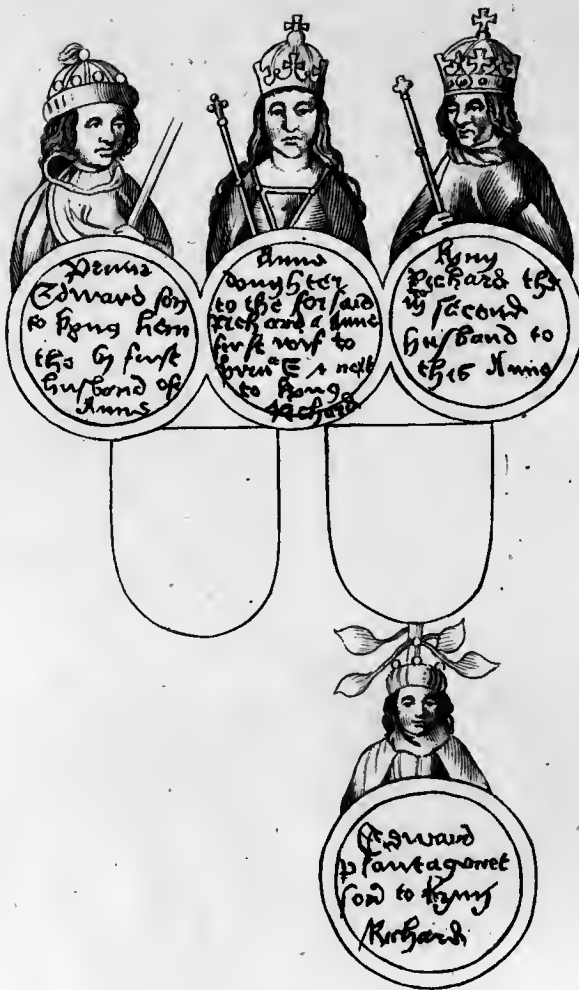 Prince
Edward son
to kyng henri
the vj furst
husband of
Anne
Anne
doughter
to the forsaid
Richard & Anne
furst wif to
& next
to kyng
Richard
kyng
Richard the
iij second
husband to
thes Anne
Edward
plantagenet
son to kyng
Richard